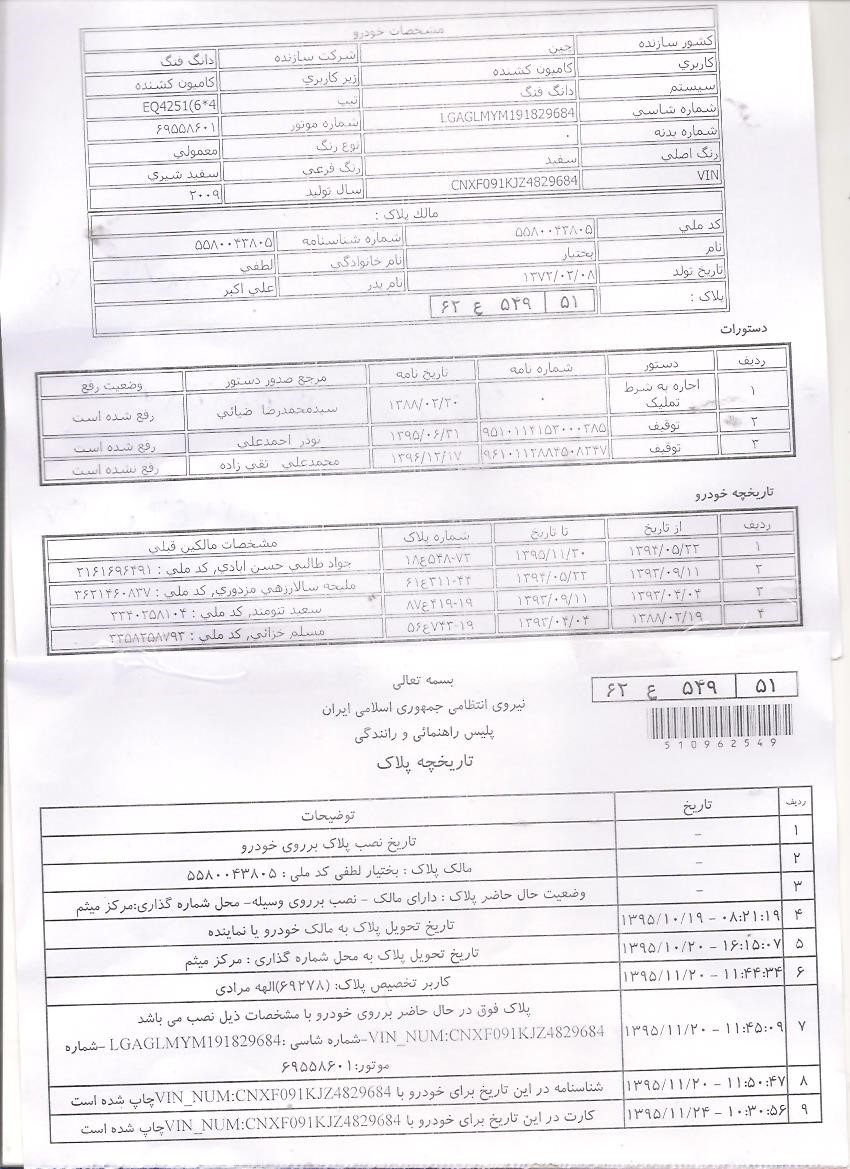 مشخصات خودرو
کشور سازنده چین شرکت سازنده دانگ فنگ
کاربری کامیون کشنده زیر کاربری کامیون کشنده
سیستم دانگ فنگ تیپ EQ4251(6*4
شماره شاسی LGAGLMYM191829684 شماره موتور ۶۹۵۵۸۶۰۱
شماره بدنه ۰ نوع رنگ معمولی
رنگ اصلی سفید رنگ فرعی سفید شیری
VIN CNXF091KJZ4829684 سال تولید ۲۰۰۹
مالك پلاک :
کد ملی ۵۵۸۰۰۴۳۸۰۵ شماره شناسنامه ۵۵۸۰۰۴۳۸۰۵
نام بختیار نام خانوادگی لطفی
تاریخ تولد ۱۳۷۲/۰۲/۰۸ نام پدر علی اکبر
پلاک : ۵۱ ۵۴۹ ع ۶۲
دستورات
ردیف دستور شماره نامه تاریخ نامه مرجع صدور دستور وضعیت رفع
۱ اجاره به شرط تملیک ۰ ۱۳۸۸/۰۲/۲۰ سیدمحمدرضا ضیائی رفع شده است
۲ توقیف ۹۵۱۰۱۱۴۱۵۳۰۰۰۲۸۵ ۱۳۹۵/۰۶/۳۱ نودر احمدعلی رفع شده است
۳ توقیف ۹۶۱۰۱۱۲۸۸۴۵۰۸۲۴۷ ۱۳۹۶/۱۲/۱۷ محمدعلی تقی زاده رفع نشده است
تاریخچه خودرو
ردیف از تاریخ تا تاریخ شماره پلاک مشخصات مالکین قبلی
۱ ۱۳۹۴/۰۵/۲۲ ۱۳۹۵/۱۱/۲۰ ۷۲-۵۴۸ع۱۸ جواد طالبی حسن ابادی, کد ملی : ۲۱۶۱۶۹۶۴۹۱
۲ ۱۳۹۳/۰۹/۱۱ ۱۳۹۴/۰۵/۲۲ ۴۴-۳۱۱ع۶۱ ملیحه سالارزهی مزدوری, کد ملی : ۳۶۲۱۴۶۰۸۳۷
۳ ۱۳۹۳/۰۴/۰۴ ۱۳۹۳/۰۹/۱۱ ۱۹-۴۱۹ع۸۷ سعید تنومند, کد ملی : ۳۳۴۰۲۵۸۱۰۴
۴ ۱۳۸۸/۰۲/۱۹ ۱۳۹۳/۰۴/۰۴ ۱۹-۷۴۳ع۵۶ مسلم خزائی, کد ملی : ۳۲۵۸۲۵۸۷۹۳
بسمه تعالی
۵۱ ۵۴۹ ع ۶۲
نیروی انتظامی جمهوری اسلامی ایران
پلیس راهنمائی و رانندگی
510962549
تاریخچه پلاک
ردیف تاریخ توضیحات
۱ – تاریخ نصب پلاک برروی خودرو
۲ – مالک پلاک : بختیار لطفی کد ملی : ۵۵۸۰۰۴۳۸۰۵
۳ – وضعیت حال حاضر پلاک : دارای مالک - نصب برروی وسیله- محل شماره گذاری:مرکز میثم
۴ ۱۳۹۵/۱۰/۱۹ - ۰۸:۲۱:۱۹ تاریخ تحویل پلاک به مالک خودرو یا نماینده
۵ ۱۳۹۵/۱۰/۲۰ - ۱۶:۱۵:۰۷ تاریخ تحویل پلاک به محل شماره گذاری : مرکز میثم
۶ ۱۳۹۵/۱۱/۲۰ - ۱۱:۴۴:۳۴ کاربر تخصیص پلاک: (۶۹۲۷۸)الهه مرادی
۷ ۱۳۹۵/۱۱/۲۰ - ۱۱:۴۵:۰۹ پلاک فوق در حال حاضر برروی خودرو با مشخصات ذیل نصب می باشد
VIN_NUM:CNXF091KJZ4829684-شماره شاسی :LGAGLMYM191829684 -شماره
موتور:۶۹۵۵۸۶۰۱
۸ ۱۳۹۵/۱۱/۲۰ - ۱۱:۵۰:۴۷ شناسنامه در این تاریخ برای خودرو با VIN_NUM:CNXF091KJZ4829684چاپ شده است
۹ ۱۳۹۵/۱۱/۲۴ - ۱۰:۳۰:۵۶ کارت در این تاریخ برای خودرو با VIN_NUM:CNXF091KJZ4829684چاپ شده است